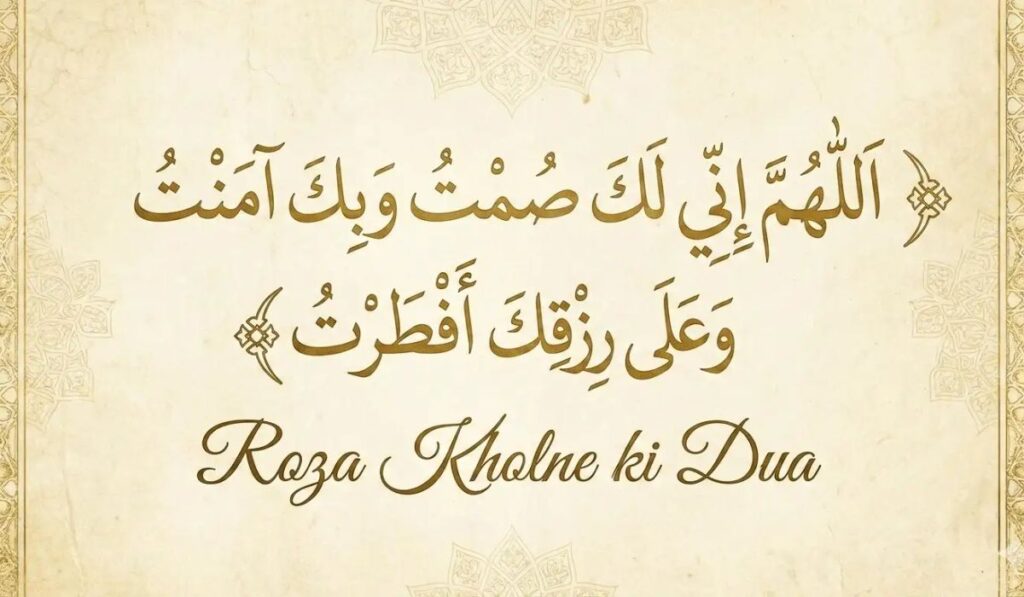 ﴿ اَللّٰهُمَّ إِنِّي لَكَ صُمْتُ وَبِكَ آمَنْتُ
وَعَلَى رِزْقِكَ أَفْطَرْتُ ﴾
Roza Kholne ki Dua